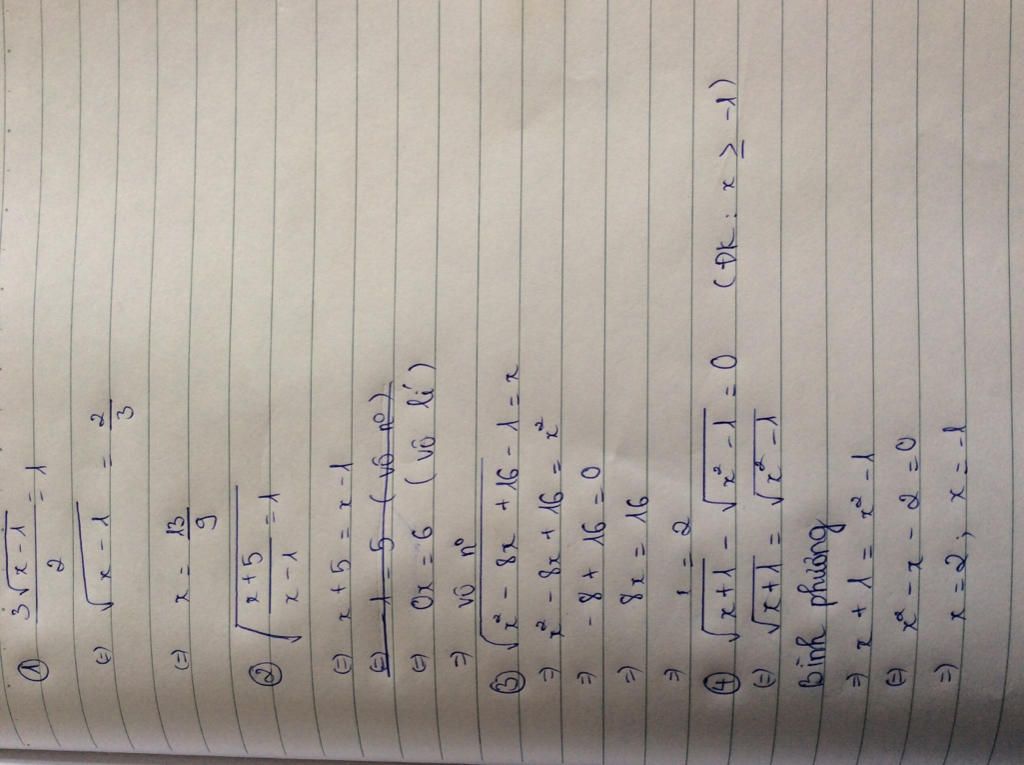 ① 3√(x-1) / 2 = 1
(=) √(x-1) = 2/3
(=) x = 13/9
② √((x+5)/(x-1)) = 1
(=) x + 5 = x - 1
(=) -1 = 5 (vô n⁰)
(=) 0x = 6 (vô lí)
=) vô n⁰
③ √(x² - 8x + 16 - 1 = x
=) x² - 8x + 16 = x²
=) - 8 + 16 = 0
=) 8x = 16
=) = 2
④ √(x+1) - √(x²-1) = 0 (ĐK: x ≥ -1)
(=) √(x+1) = √(x²-1)
Bình phương
=) x + 1 = x² - 1
(=) x² - x - 2 = 0
=) x = 2; x = -1